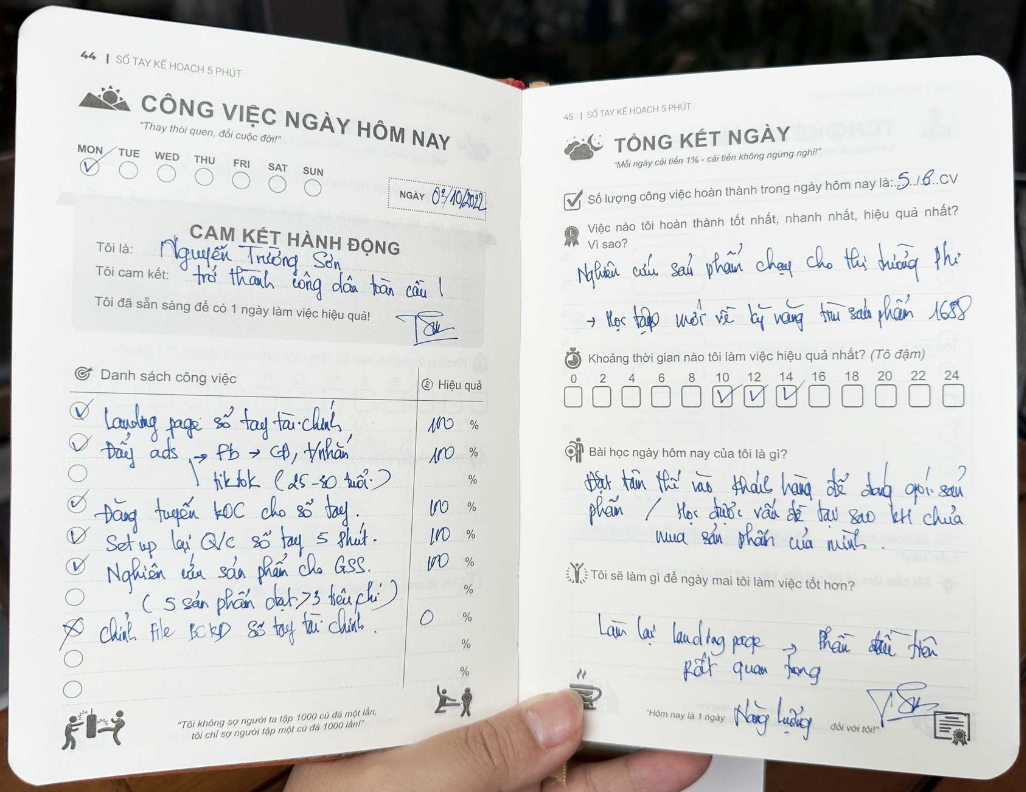 44 | SỔ TAY KẾ HOẠCH 5 PHÚT
CÔNG VIỆC NGÀY HÔM NAY
"Thay thói quen, đổi cuộc đời!"
MON TUE WED THU FRI SAT SUN
NGÀY 03/10/2022
CAM KẾT HÀNH ĐỘNG
Tôi là: Nguyễn Trường Sơn
Tôi cam kết: trở thành công dân toàn cầu!
Tôi đã sẵn sàng để có 1 ngày làm việc hiệu quả!
Danh sách công việc Hiệu quả
Landing page sổ tay tài chính 100 %
Đẩy ads → Fb → CĐ, t/nhắn 100 %
tiktok (25-30 tuổi) %
Đăng tuyển KOC cho sổ tay. 100 %
Set up lại Q/c sổ tay 5 phút. 100 %
Nghiên cứu sản phẩm cho GSS. 100 %
( 5 sản phẩm đạt >3 tiêu chí ) %
Chỉnh file sổ tay tài chính. 0 %
%
%
"Tôi không sợ người ta tập 1000 cú đá một lần,
tôi chỉ sợ người tập một cú đá 1000 lần!"
45 | SỔ TAY KẾ HOẠCH 5 PHÚT
TỔNG KẾT NGÀY
"Mỗi ngày cải tiến 1% - cải tiến không ngừng nghỉ!"
Số lượng công việc hoàn thành trong ngày hôm nay là: 5 / 6 CV
Việc nào tôi hoàn thành tốt nhất, nhanh nhất, hiệu quả nhất?
Vì sao?
Nghiên cứu sản phẩm chạy cho thị trường Phi
→ Học tập mới về kỹ năng tìm sản phẩm 1688
Khoảng thời gian nào tôi làm việc hiệu quả nhất? (Tô đậm)
0 2 4 6 8 10 12 14 16 18 20 22 24
Bài học ngày hôm nay của tôi là gì?
Đặt tâm thế vào khách hàng để đóng gói sản
phẩm / Học được vấn đề tại sao KH chưa
mua sản phẩm của mình.
Tôi sẽ làm gì để ngày mai tôi làm việc tốt hơn?
Làm lại landing page → Phần đầu tiên
rất quan trọng
"Hôm nay là 1 ngày Năng lượng đối với tôi!"